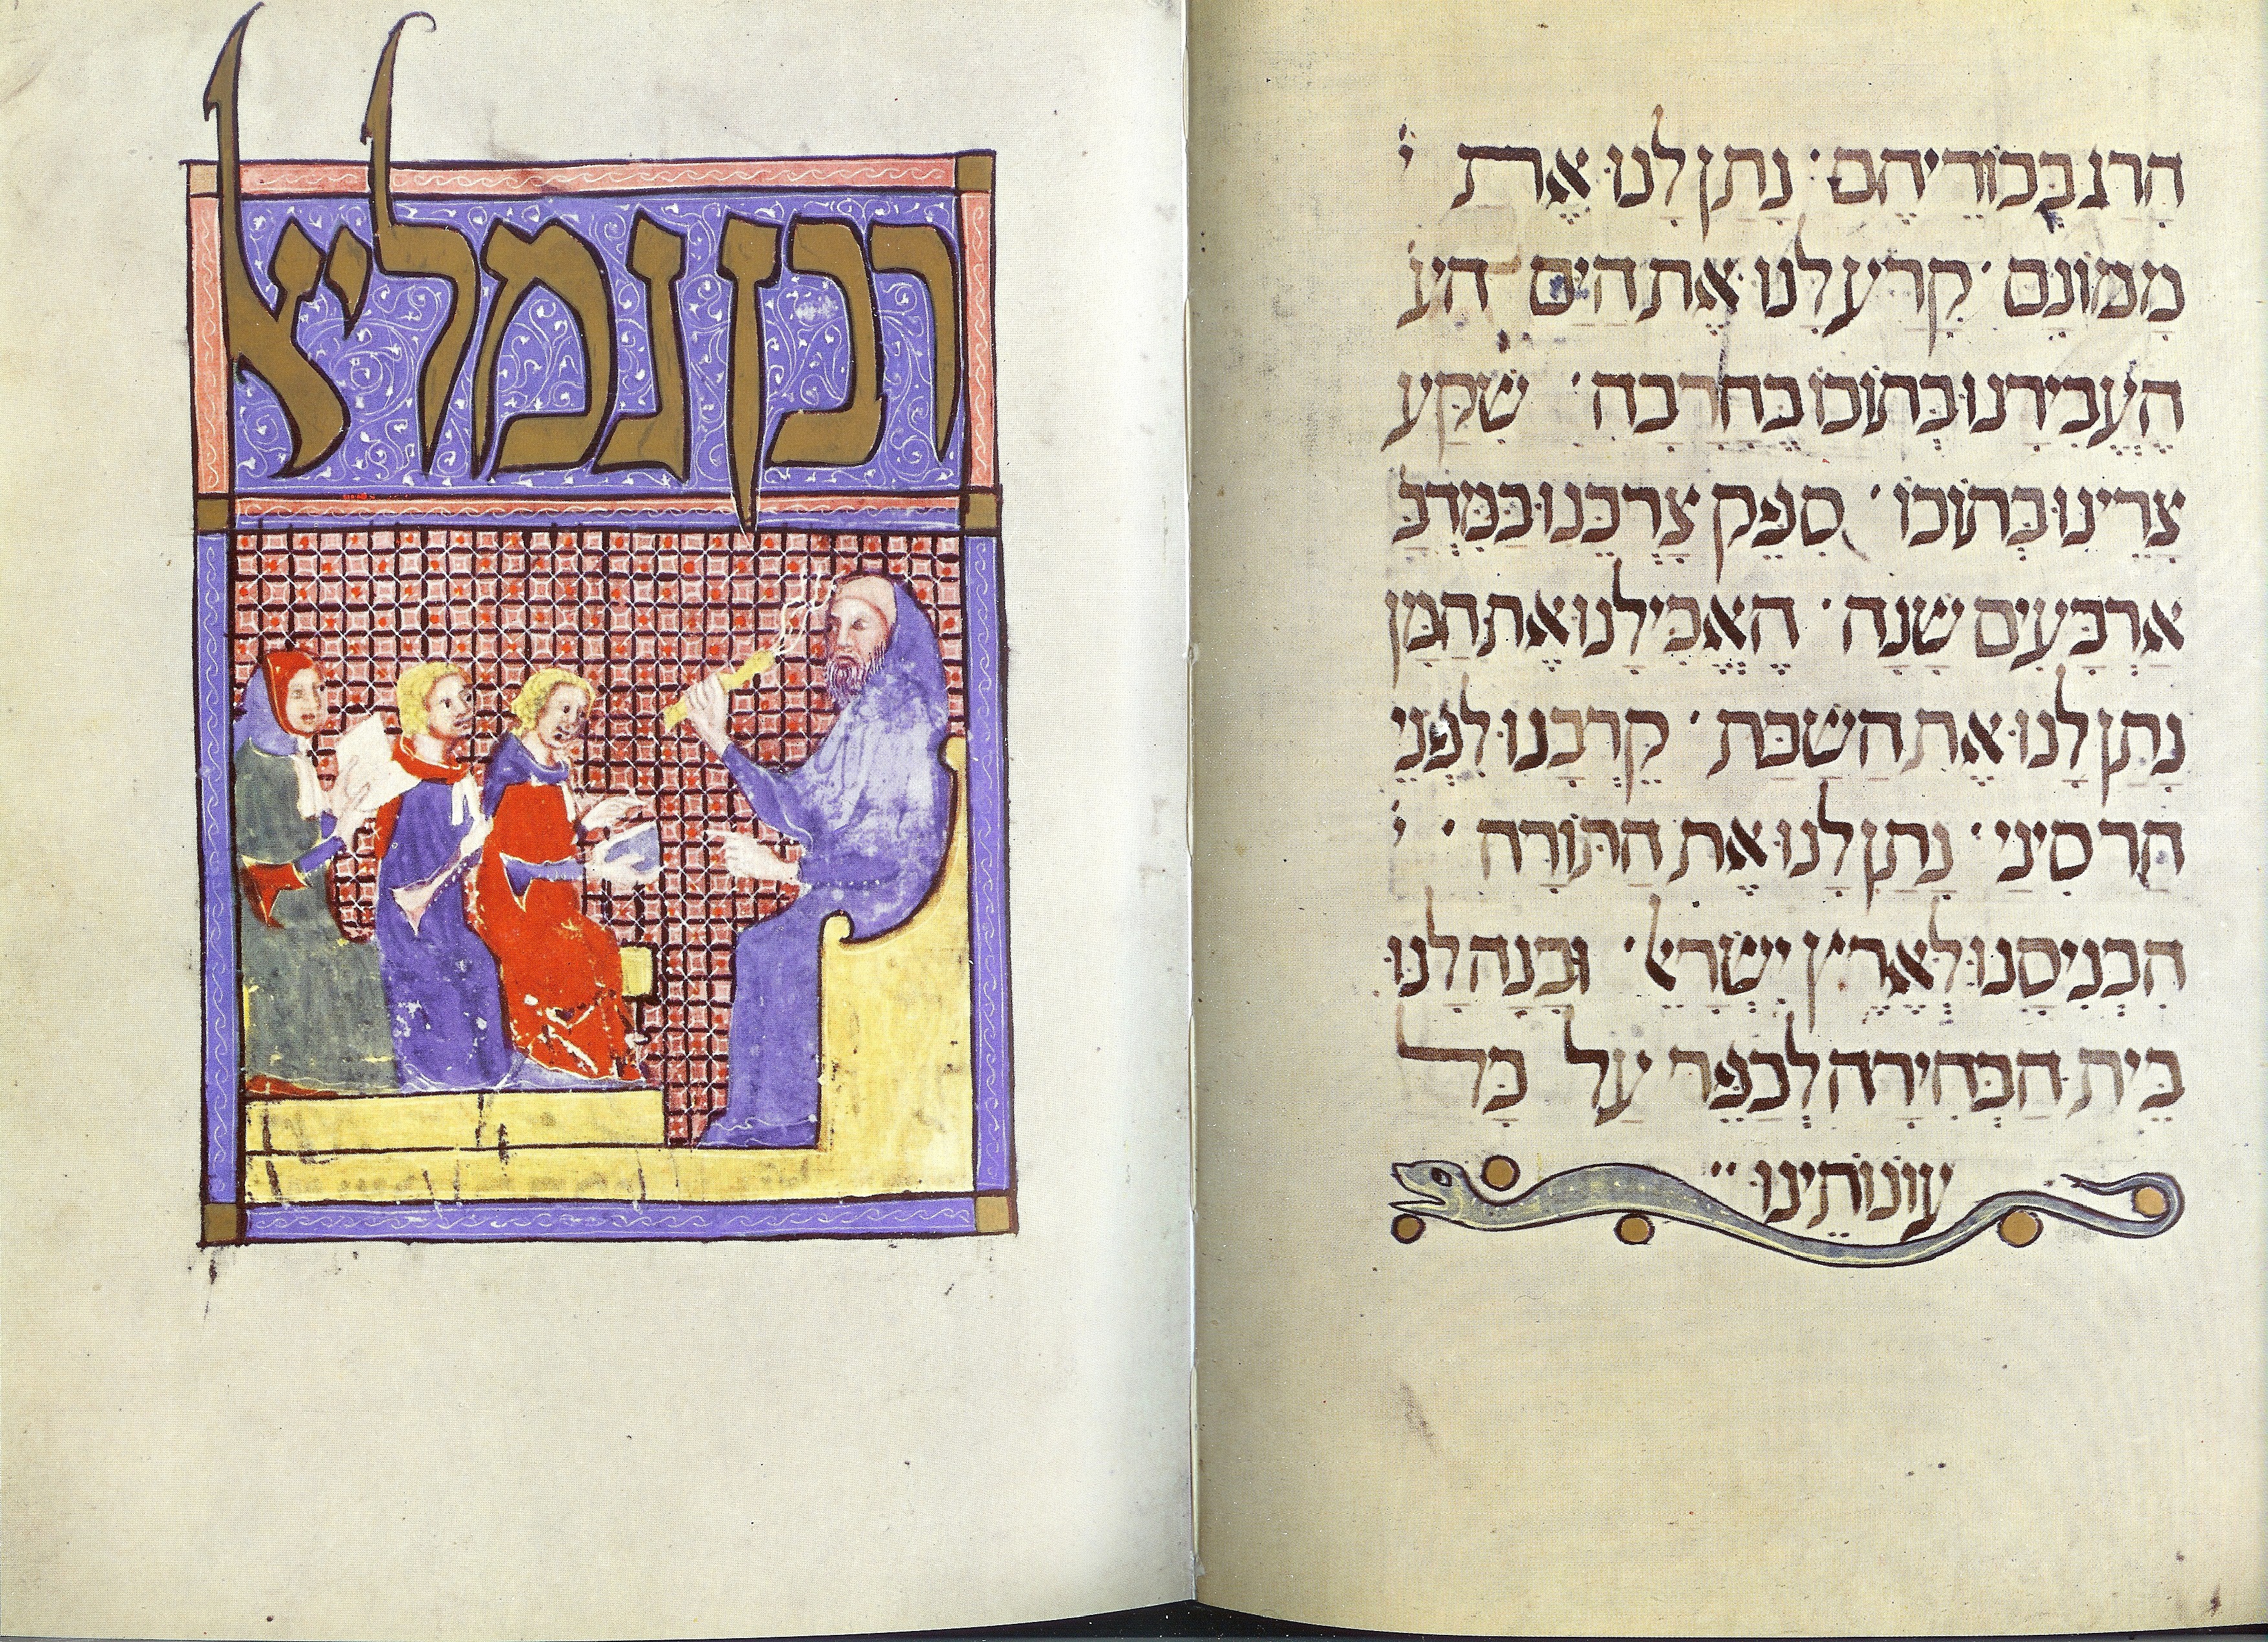 הָרַג בְּכוֹרֵיהֶם · נָתַן לָנוּ אֶת י
מָמוֹנָם · קָרַע לָנוּ אֶת הַיָּם הע
הֶעֱבִירָנוּ בְּתוֹכוֹ בֶּחָרָבָה · שִׁקַּע
צָרֵינוּ בְּתוֹכוֹ · סִפֵּק צָרְכֵּנוּ בַּמִּדְבָּ
אַרְבָּעִים שָׁנָה · הֶאֱכִילָנוּ אֶת הַמָּן
נָתַן לָנוּ אֶת הַשַּׁבָּת · קֵרְבָנוּ לִפְנֵי
הַר סִינַי · נָתַן לָנוּ אֶת הַתּוֹרָה · י
הִכְנִיסָנוּ לְאֶרֶץ יִשְׂרָאֵל · וּבָנָה לָנוּ
בֵּית הַבְּחִירָה לְכַפֵּר עַל כָּל
עֲוֹנוֹתֵינוּ
רבן גמליאל